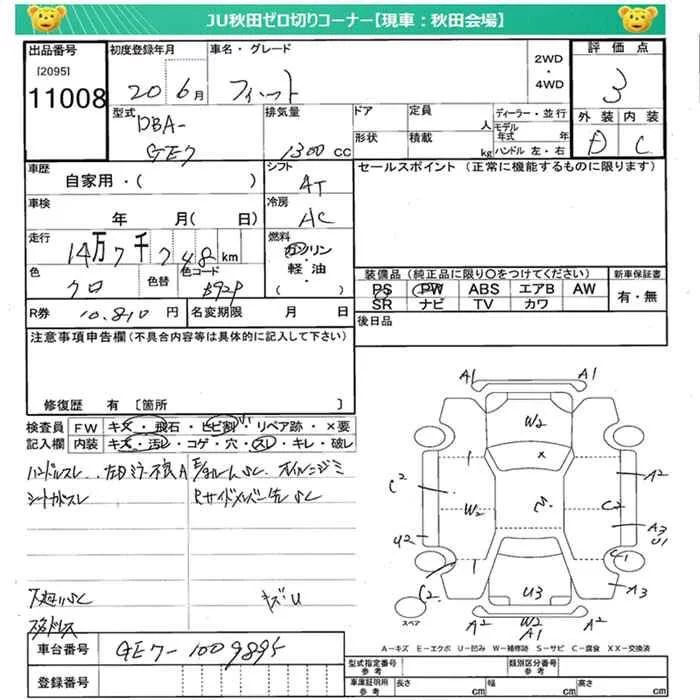 JU秋田ゼロ切りコーナー【現車：秋田会場】
出品番号 初度登録年月 車名・グレード 2WD ・ 4WD 評価点
[2095]
11008 20 6月 フィット 3
型式 DBA-GE7 排気量 1300 CC ドア 定員 人 ディーラー・並行
形状 積載 kg モデル年式 年 ハンドル 左・右
外装 内装
D C
車歴 自家用・( ) シフト AT セールスポイント (正常に機能するものに限ります)
車検 年 月( 日) 冷房 AC
走行 14万7千748km 燃料 ガソリン・軽油・( )
色 クロ 色替 色コード B92P
装備品 (純正品に限り○をつけてください) 新車保証書
PS PW ABS エアB AW 有・無
SR ナビ TV カワ
R券 10.810円 名変期限 月 日 後日品
注意事項申告欄(不具合内容等は具体的に記入して下さい)
修復歴 有 〔箇所 〕
検査員記入欄 FW キズ・飛石・ヒビ割・リペア跡・×要
内装 キズ・汚レ・コゲ・穴・スレ・キレ・破レ
ハンドルスレ
オイルニジミ
シートカドスレ
キズU
スタッドレス
A1 A1
W2
×
A2
C2 W2 C2
A3
U1
U2
C2 U3 C1 A3
A2 W2 A2
A1
スペア
A－キズ E－エクボ U－凹み W－補修跡 S－サビ C－腐食 XX－交換済
車台番号 GE7-1009895
登録番号
型式指定番号 参考 類別区分番号 参考
車庫証明用 参考 長さ cm 幅 cm 高さ cm